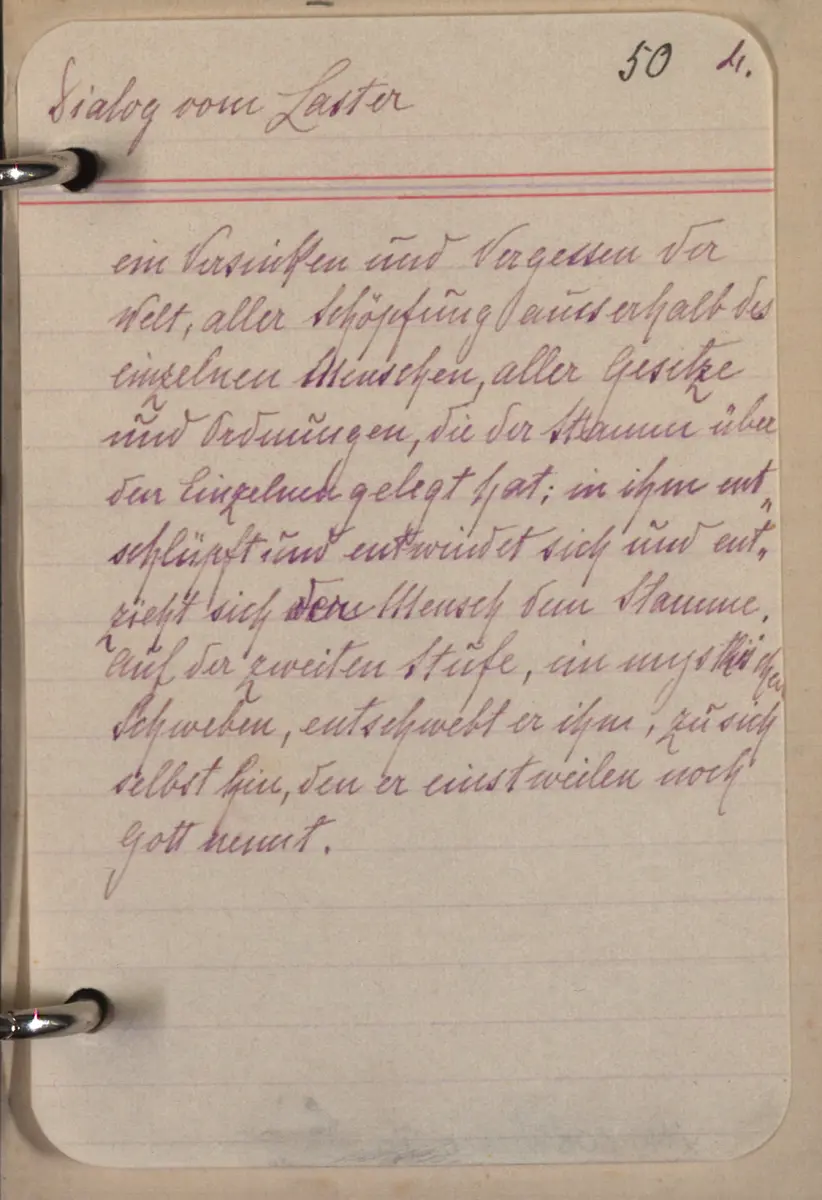 50 4.
Dialog vom Laster
ein Versinken und Vergessen der
Welt, aller Schöpfung ausserhalb des
einzelnen Menschen, aller Gesetze
und Ordnungen, die der Stamm über
den Einzelnen gelegt hat; in ihm ent„
schlüpft und entwindet sich und ent„
zieht sich der Mensch dem Stamme.
Auf der zweiten Stufe, im mystischen
Schweben, entschwebt er ihm, zu sich
selbst hin, den er einstweilen noch
Gott nennt.